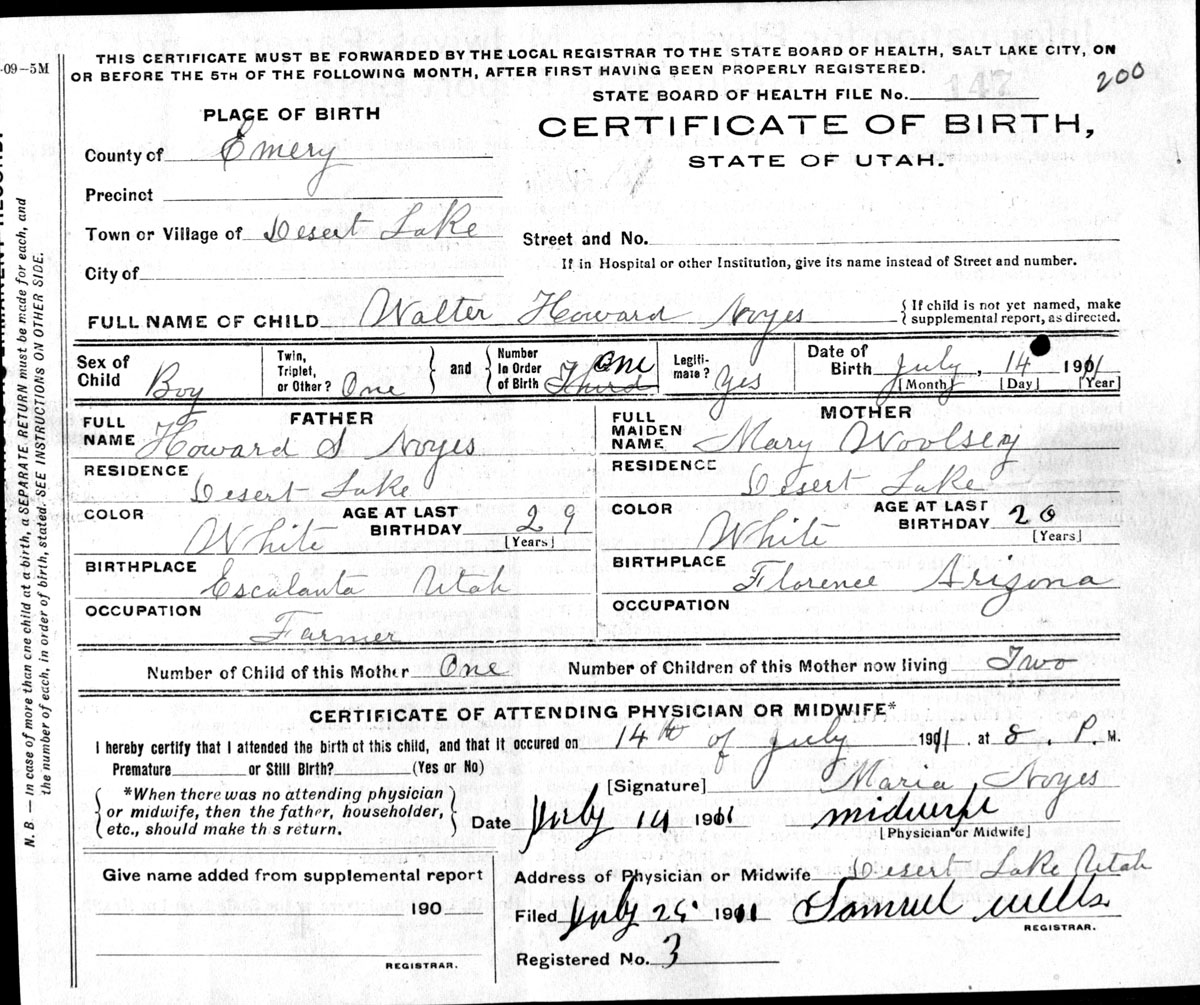 THIS CERTIFICATE MUST BE FORWARDED BY THE LOCAL REGISTRAR TO THE STATE BOARD OF HEALTH, SALT LAKE CITY, ON
OR BEFORE THE 5TH OF THE FOLLOWING MONTH, AFTER FIRST HAVING BEEN PROPERLY REGISTERED.
-09-5M
200
STATE BOARD OF HEALTH FILE No. 147
PLACE OF BIRTH
CERTIFICATE OF BIRTH,
STATE OF UTAH.
County of Emery
Precinct
Town or Village of Desert Lake
Street and No.
If in Hospital or other Institution, give its name instead of Street and number.
City of
FULL NAME OF CHILD Walter Howard Noyes {If child is not yet named, make
supplemental report, as directed.
Sex of Child Boy Twin, Triplet, or Other? One } and { Number In Order of Birth Third One Legiti-mate? Yes Date of Birth July, 14 1911
[Month] [Day] [Year]
FATHER
FULL NAME Howard S Noyes
RESIDENCE Desert Lake
COLOR White AGE AT LAST BIRTHDAY 29
[Years]
BIRTHPLACE Escalanta Utah
OCCUPATION Farmer
MOTHER
FULL MAIDEN NAME Mary Woolsey
RESIDENCE Desert Lake
COLOR White AGE AT LAST BIRTHDAY 20
[Years]
BIRTHPLACE Florence Arizona
OCCUPATION
Number of Child of this Mother One Number of Children of this Mother now living Two
CERTIFICATE OF ATTENDING PHYSICIAN OR MIDWIFE*
I hereby certify that I attended the birth of this child, and that it occured on 14th of July 1911, at 8. P. M.
Premature or Still Birth? (Yes or No)
*When there was no attending physician
or midwife, then the father, householder,
etc., should make this return.
[Signature] Maria Noyes
Date July 14 1911 midwife
[Physician or Midwife]
Give name added from supplemental report
190
REGISTRAR.
Address of Physician or Midwife Desert Lake Utah
Filed July 25 1911 Samuel Wells
REGISTRAR.
Registered No. 3
N. B. — In case of more than one child at a birth, a SEPARATE RETURN must be made for each, and
the number of each, in order of birth, stated. SEE INSTRUCTIONS ON OTHER SIDE.